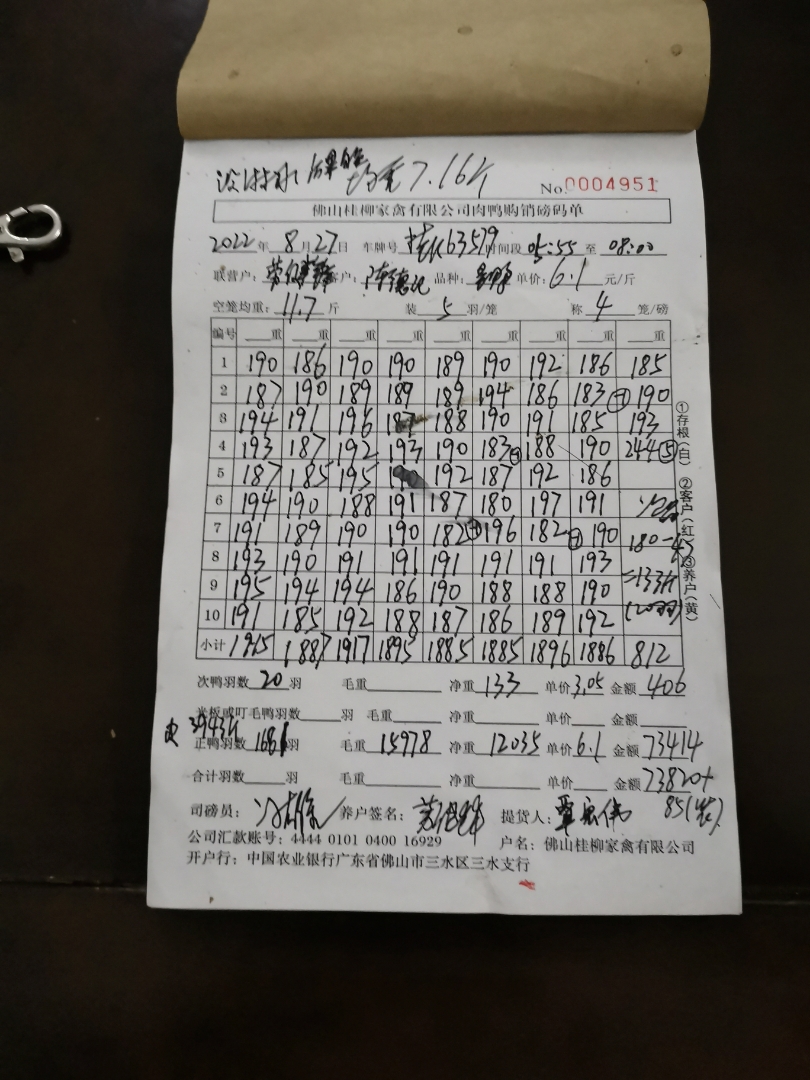 均重7.16斤
No.0004951
佛山桂柳家禽有限公司肉鸭购销磅码单
2022年8月27日 车牌号 63579 时间段 05:55 至 08:00
联营户: 客户: 陈德记 品种: 单价: 6.1 元/斤
空笼均重: 11.7 斤 装 5 羽/笼 称 4 笼/磅
编号 重 重 重 重 重 重 重 重 重
1 190 186 190 190 189 190 192 186 185
2 187 190 189 189 189 194 186 183 190
3 194 191 196 187 188 190 191 185 193
4 193 187 192 193 190 183 188 190 244 ⑤
5 187 185 195 192 187 192 186
6 194 190 188 191 187 180 197 191
7 191 189 190 190 182 196 182 190 180-47
8 193 190 191 191 191 191 191 193
9 195 194 194 186 190 188 188 190 =133斤
10 191 185 192 188 187 186 189 192 (20羽)
小计 1915 1887 1917 1895 1885 1885 1896 1886 812
①存根(白) ②客户(红) ③养户(黄)
次鸭羽数 20 羽 毛重 净重 133 单价 3.05 金额 406
光板或叮毛鸭羽数 羽 毛重 净重 单价 金额
皮 3943斤
正鸭羽数 1681 毛重 15978 净重 12035 单价 6.1 金额 73414
合计羽数 羽 毛重 净重 单价 金额 73820+
司磅员: 养户签名: 提货人: 85(装)
公司汇款账号: 4444 0101 0400 16929 户名: 佛山桂柳家禽有限公司
开户行: 中国农业银行广东省佛山市三水区三水支行